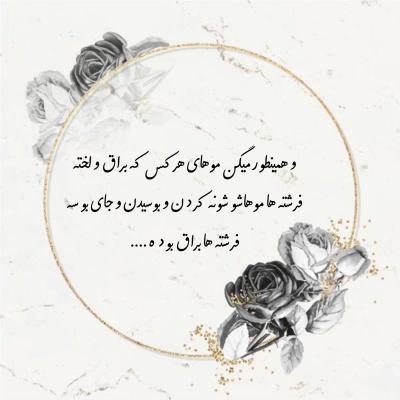 و همینطور میگن موهای هر کس که براق و لخته
فرشته ها موهاشو شونه کردن و بوسیدن و جای بوسه
فرشته ها براق بوده....